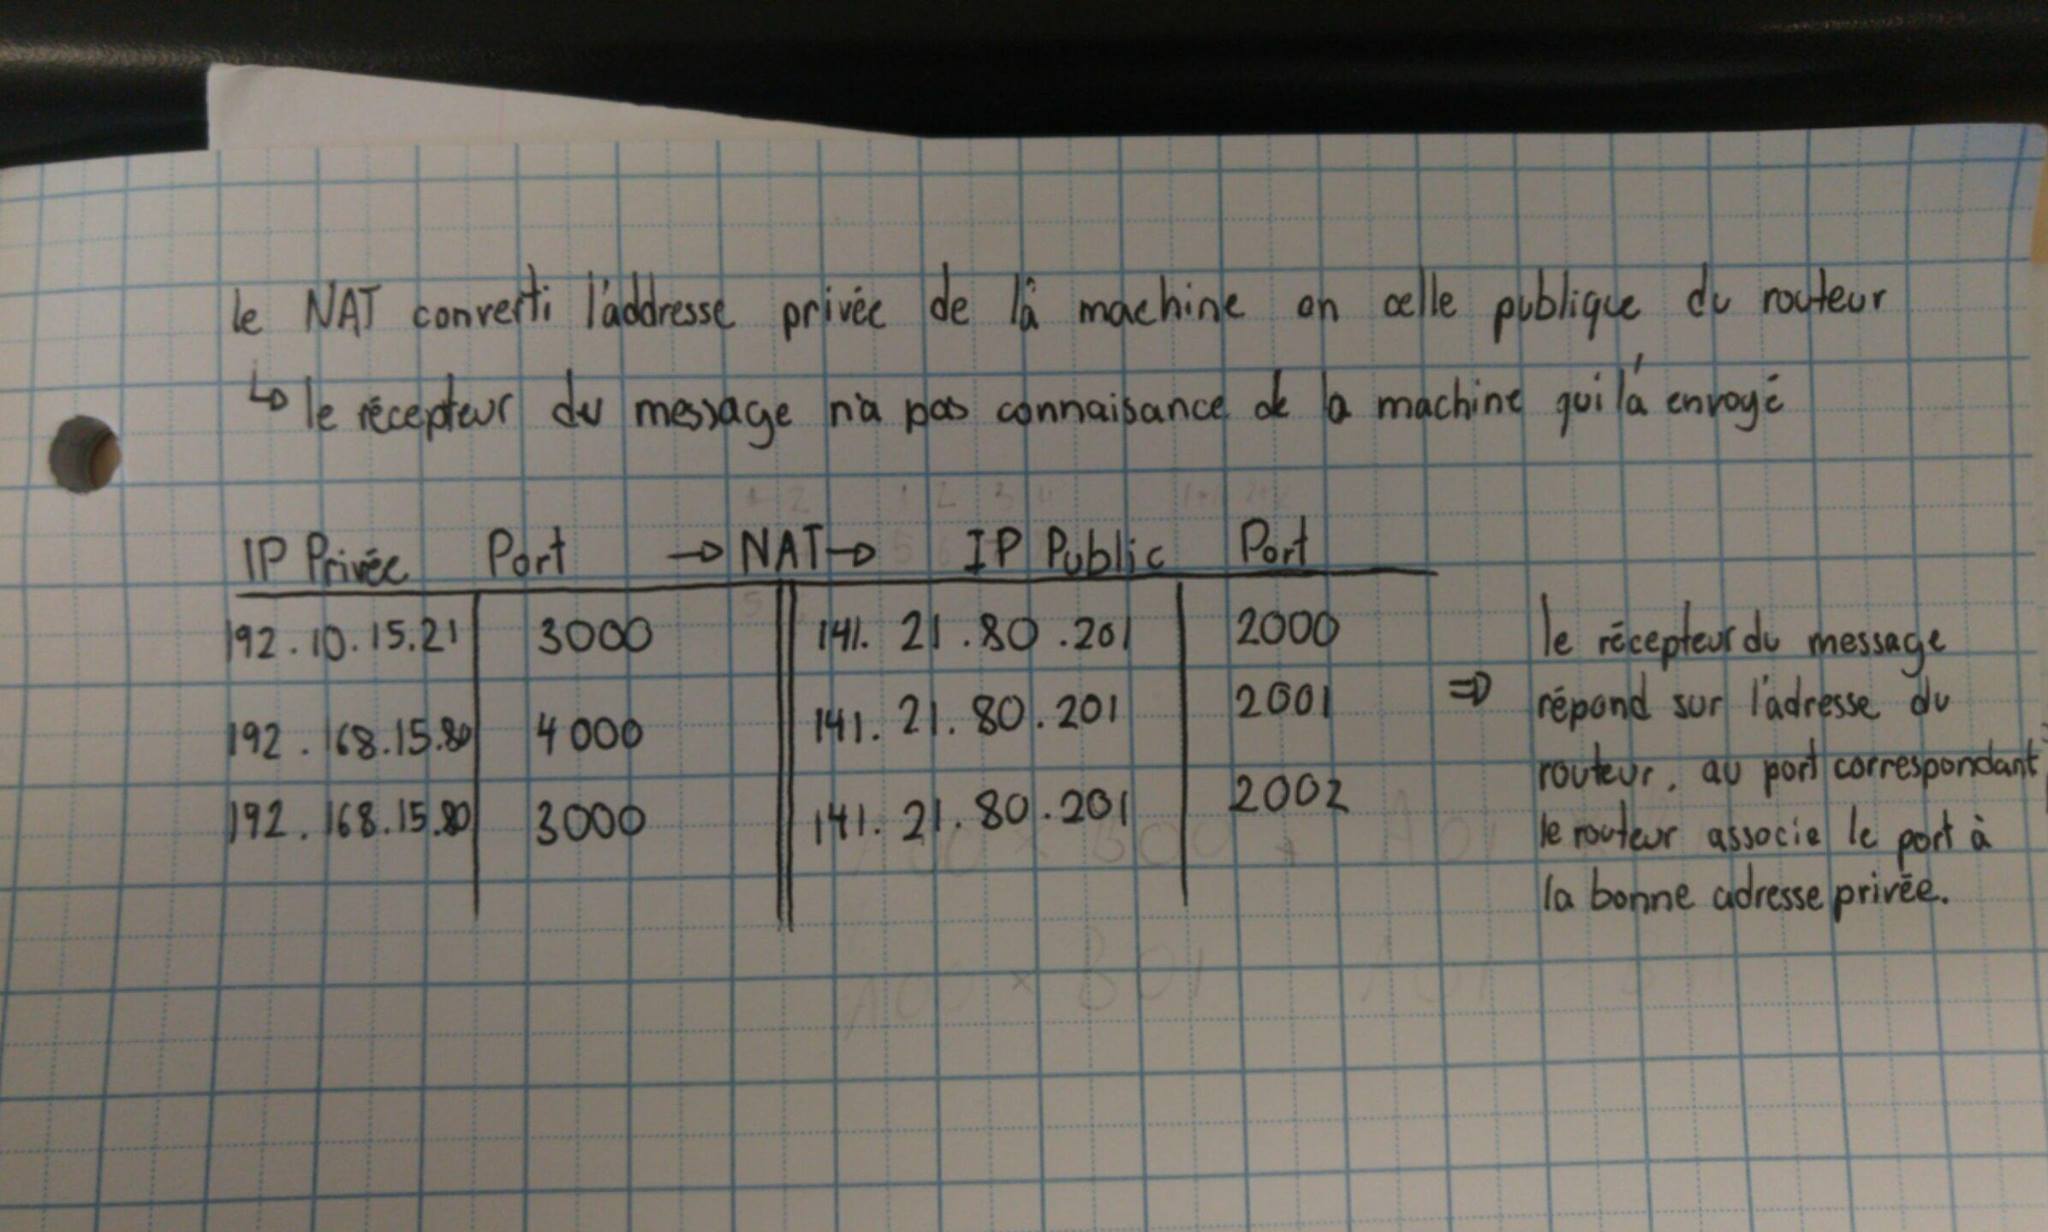 le NAT converti l'addresse privée de là machine en celle publique du routeur
↳ le récepteur du message n'a pas connaisance de la machine qui l'a envoyé
IP Privée Port → NAT → IP Public Port
192.10.15.21 3000 141.21.80.201 2000
192.168.15.80 4000 141.21.80.201 2001
192.168.15.80 3000 141.21.80.201 2002
⇒ le récepteur du message
répond sur l'adresse du
routeur, au port correspondant
le routeur associe le port à
la bonne adresse privée.